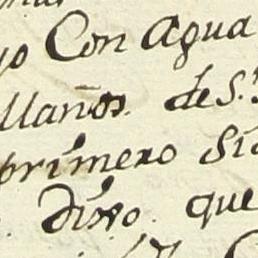 yo Con agua
llanos. de S.
primero Si
Dixo. que